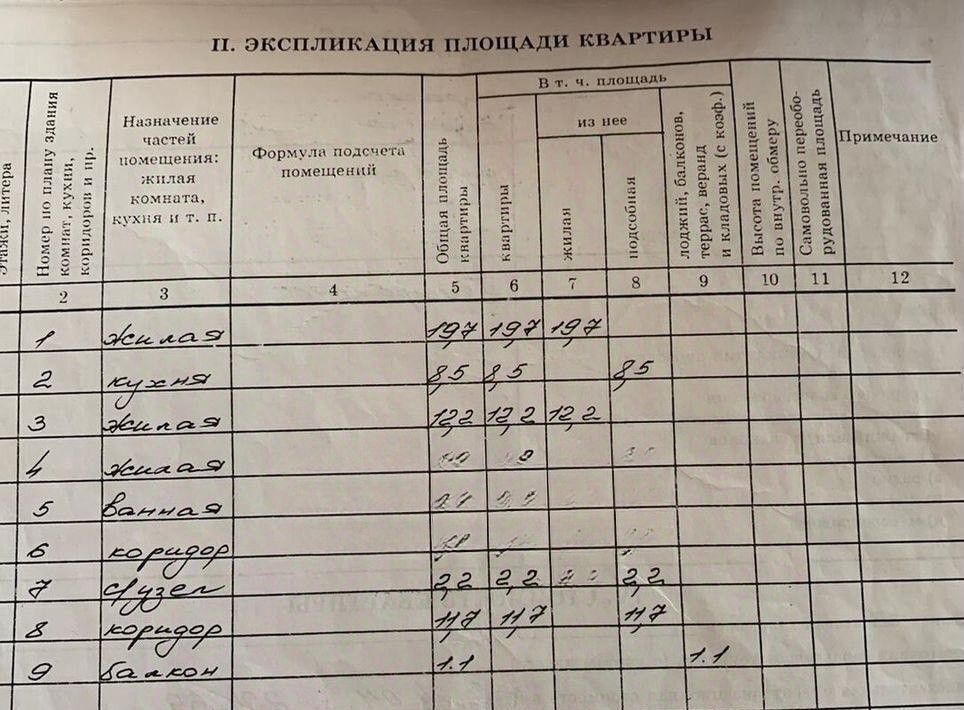 II. ЭКСПЛИКАЦИЯ ПЛОЩАДИ КВАРТИРЫ
Этажи, литера
Номер по плану здания комнат, кухни, коридоров и пр.
Назначение
частей
помещения:
жилая
комната,
кухня и т. п.
Формула подсчета
помещений
Общая площадь
квартиры
В т. ч. площадь
квартиры
из нее
жилая
подсобная
лоджий, балконов,
террас, веранд
и кладовых (с коэф.)
Высота помещений
по внутр. обмеру
Самовольно переобо-
рудованная площадь
Примечание
2 3 4 5 6 7 8 9 10 11 12
1 жилая 19,7 19,7 19,7
2 кухня 8,5 8,5 8,5
3 жилая 12,2 12,2 12,2
4 жилая
5 ванная
6 коридор
7 с/узел 2,2 2,2 2,2
8 коридор 11,7 11,7 11,7
9 балкон 1.1 1.1